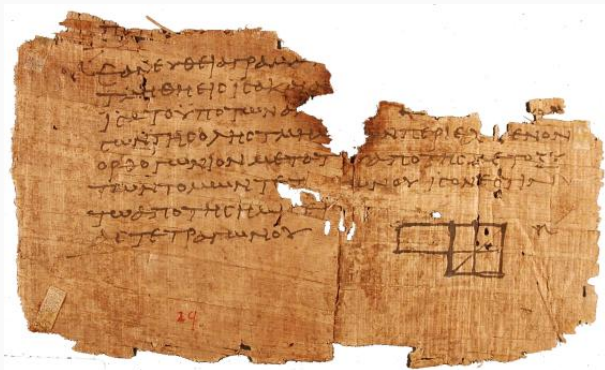 ΕΑΝΕΥΘΕΙΑΓΡΑΜ
ΤΜΗΘΗΕΙϹΙϹΑΚΑΙ
ΙϹΑΤΟΥΠΟΤΩΝΑ
ϹΩΝΤΗϹΟΛΗϹΤΜΗΜ ΩΝΠΕΡΙΕΧ ΜΕΝΟΝ
ΟΡΘΟΓΩΝΙΟΝΜΕΤΟΤ ΑΠΟΤΗϹΜΕΤΟΞΥ
ΤΩΝΤΟΜΩΝΤΕΤ ΩΝΟΥΙϹΟΝΕϹΤΙΝ
ΤΩΑΠΟΤΗϹΗΜΙ
ΑϹΤΕΤΡΑΓΩΝΟΥ
29